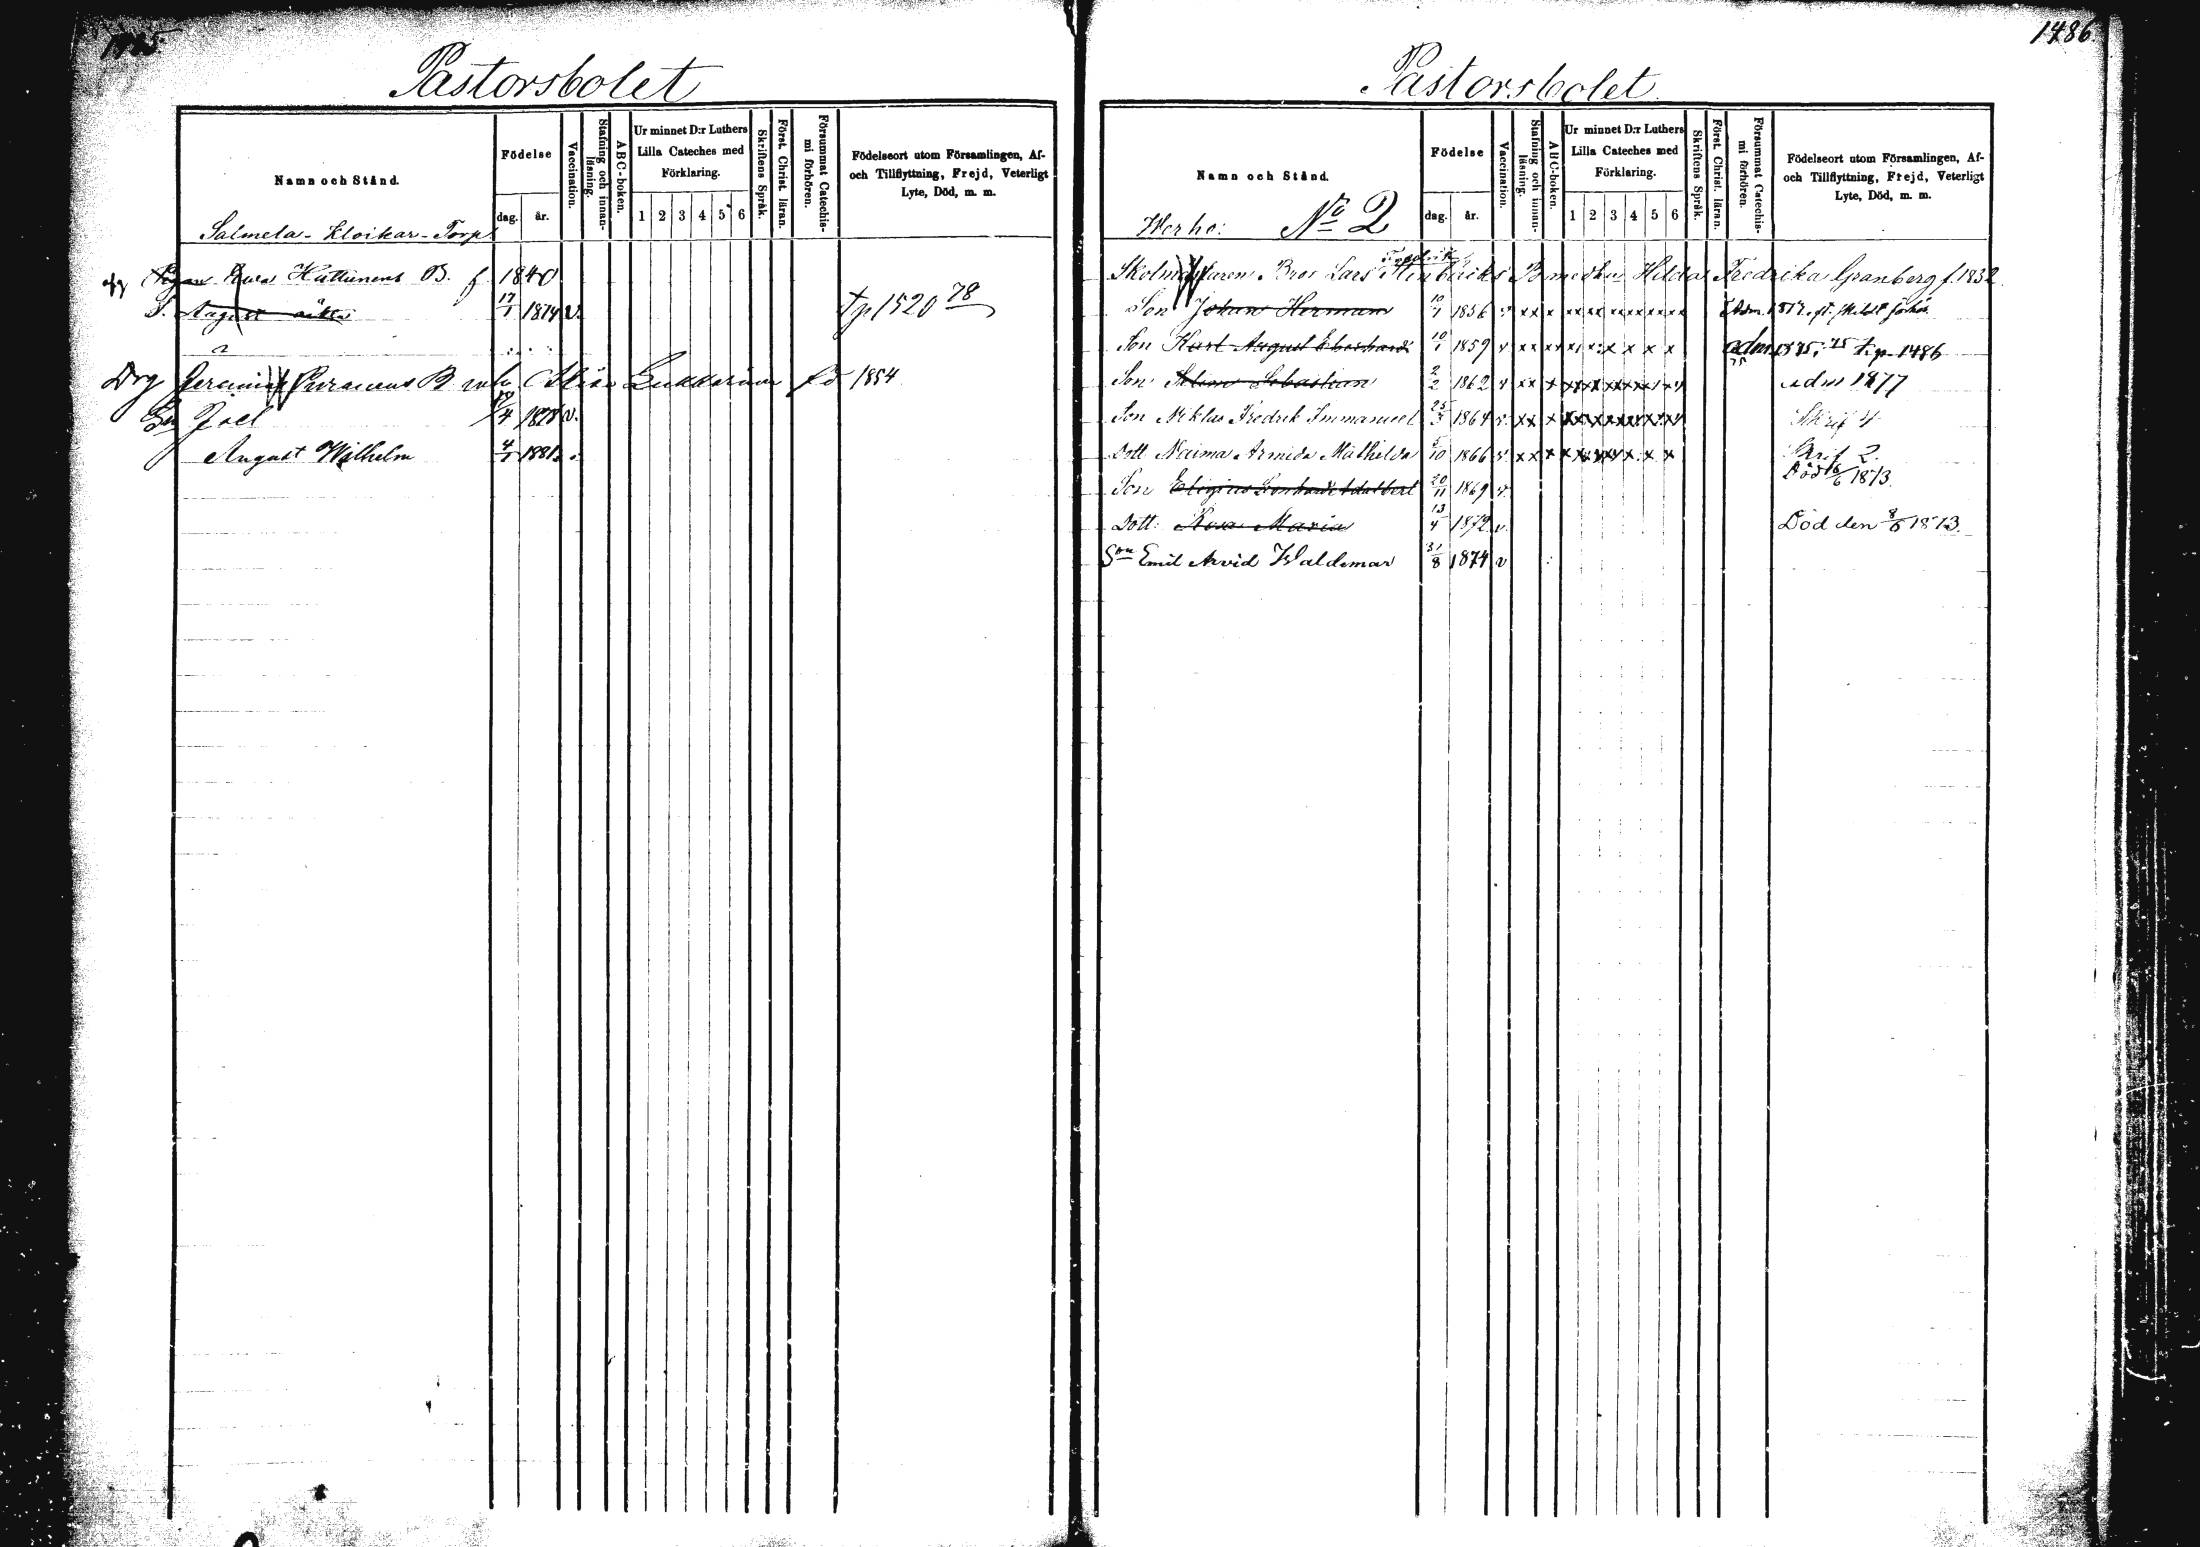 1485
Pastorsbolet
Namn och Stånd.
Födelse
dag.
år.
Vaccination.
Stafning och innanläsning.
ABC-boken.
Ur minnet D:r Luthers Lilla Cateches med Förklaring.
1 2 3 4 5 6
Skriftens Språk.
Först. Christ. läran.
Försummat Catechismi förhören.
Födelseort utom Församlingen, Af- och Tillflyttning, Frejd, Veterligt Lyte, Död, m. m.
Salmela - Klockar - Torp
Huttunens f. 1840
S. August 17/1 1874 v. tp 1520 78
Drg B m hu Lukkarinen fd 1854
Joel 1878 v.
August Wilhelm 4/1 1881
1486
Pastorsbolet
Namn och Stånd.
Födelse
dag.
år.
Vaccination.
Stafning och innanläsning.
ABC-boken.
Ur minnet D:r Luthers Lilla Cateches med Förklaring.
1 2 3 4 5 6
Skriftens Språk.
Först. Christ. läran.
Försummat Catechismi förhören.
Födelseort utom Församlingen, Af- och Tillflyttning, Frejd, Veterligt Lyte, Död, m. m.
Werho: No 2
Fredrik
Skolmästaren Lars B med hu Hilda Fredrika Granberg f. 1832
Son Johan Herman 10/1 1856 v xx x xx xx xx xx xx xx
Son Karl August Eberhard 10/1 1859 v xx xx x x x x x x adm 1875 75 t.p. 1486
Son Sebastian 2/2 1862 v xx x adm 1877
Son Niklas Fredrik Immanuel 25/3 1864 v xx x Skrif 4
Dott Naima Armida Mathilda 5/10 1866 v xx x Skrif 2
Son Eligius Leonhard Adalbert 20/11 1869 v Död 1873
Dott: Rosa Maria 13/4 1872 v Död den 8/6 1873
Son Emil Arvid Waldemar 31/8 1874 v